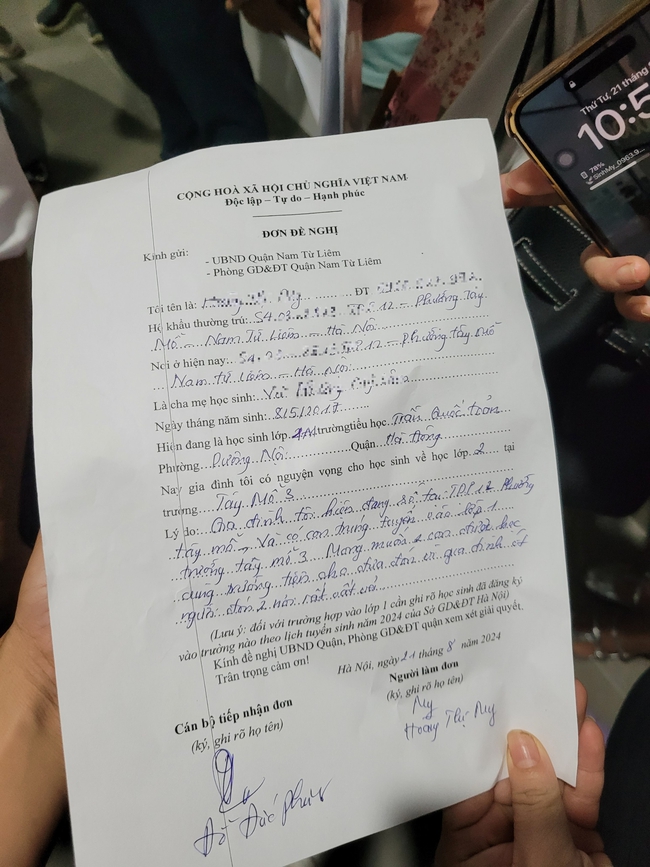 CỘNG HOÀ XÃ HỘI CHỦ NGHĨA VIỆT NAM
Độc lập – Tự do – Hạnh phúc
ĐƠN ĐỀ NGHỊ
Kính gửi:
- UBND Quận Nam Từ Liêm
- Phòng GD&ĐT Quận Nam Từ Liêm
Tôi tên là: My ĐT
Hộ khẩu thường trú: S4.03 12 – Phường Tây
Mỗ – Nam Từ Liêm – Hà Nội
Nơi ở hiện nay: 12 – Phường Tây Mỗ
Nam Từ Liêm – Hà Nội
Là cha mẹ học sinh: Vũ
Ngày tháng năm sinh: 8/5/2017
Hiện đang là học sinh lớp trường tiểu học Trần Quốc Toản
Phường Dương Nội Quận Hà Đông
Nay gia đình tôi có nguyện vọng cho học sinh về học lớp 2 tại
trường Tây Mỗ 3
Lý do: Gia đình tôi hiện đang số tại TDP 12 Phường
Tây mỗ, Và có con trúng tuyển vào lớp 1
trường tây mỗ 3. Mong muốn 2 con được học
cùng trường tiện cho đưa đón vì gia đình ít
người đón 2 nơi rất vất vả
(Lưu ý: đối với trường hợp vào lớp 1 cần ghi rõ học sinh đã đăng ký
vào trường nào theo lịch tuyển sinh năm 2024 của Sở GD&ĐT Hà Nội)
Kính đề nghị UBND Quận, Phòng GD&ĐT quận xem xét giải quyết.
Trân trọng cảm ơn!
Hà Nội, ngày 21 tháng 8 năm 2024
Cán bộ tiếp nhận đơn
(ký, ghi rõ họ tên)
Người làm đơn
(ký, ghi rõ họ tên)
My
Hoàng Thị My
Đỗ Đức Phúc
Thứ Tư, 21 tháng
10:5
78%